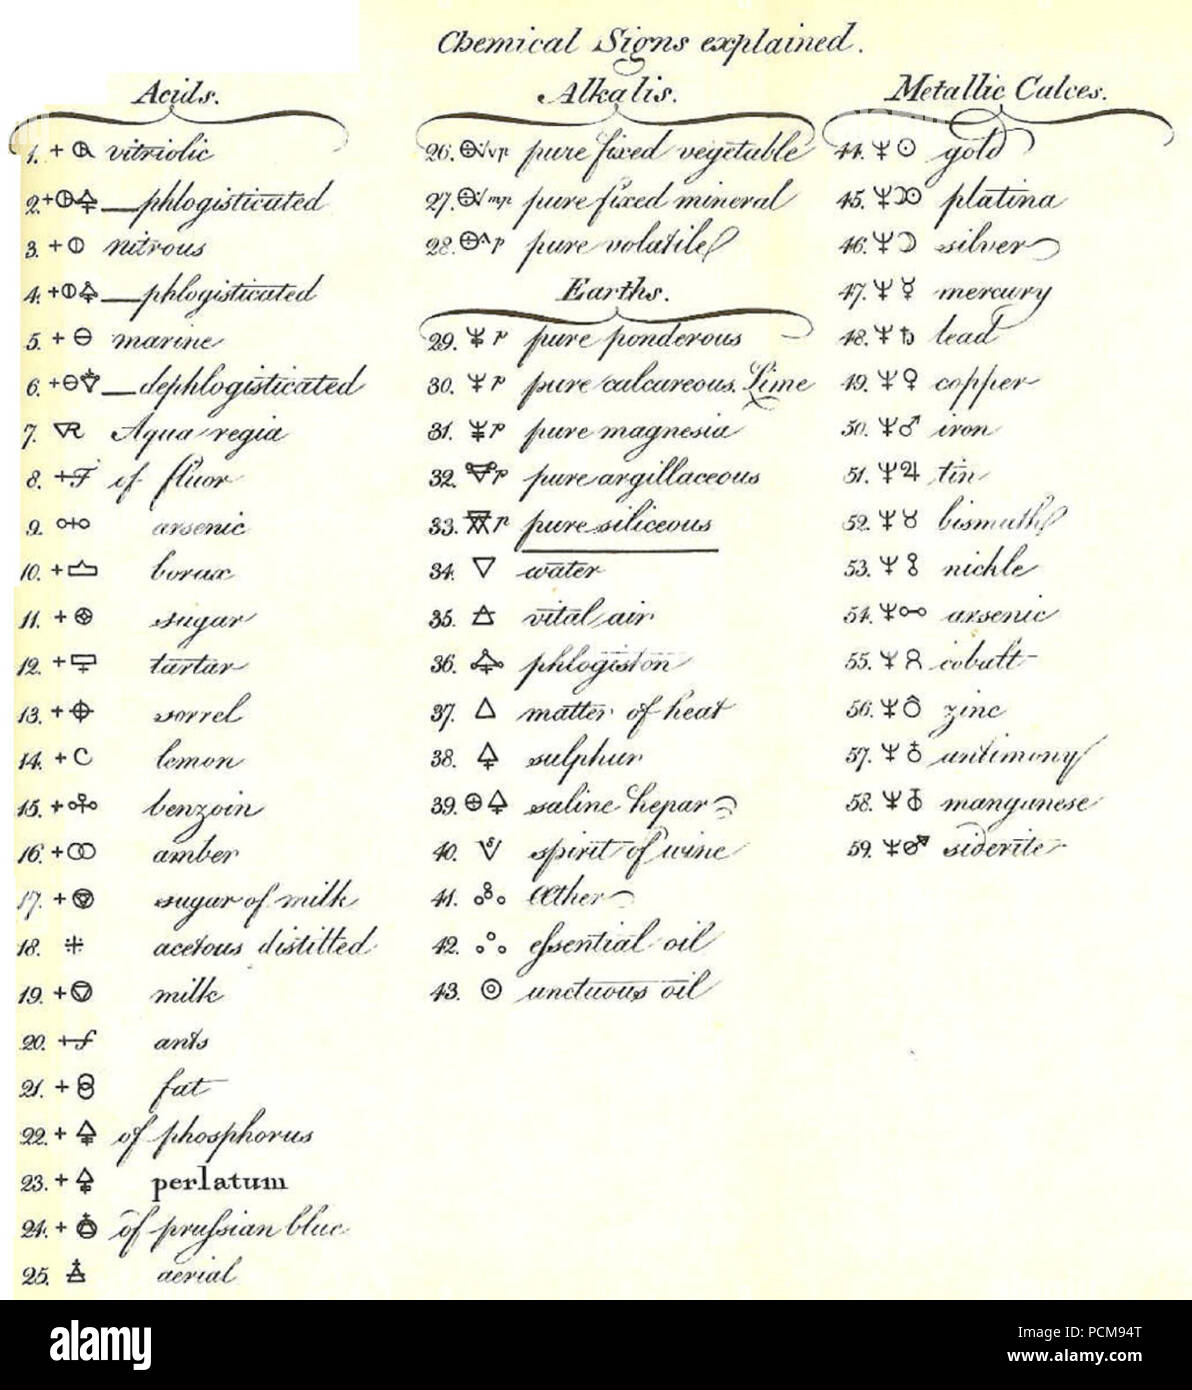 Chemical Signs explained.
Acids.
1. vitriolic
2. phlogisticated
3. nitrous
4. phlogisticated
5. marine
6. dephlogisticated
7. Aqua regia
8. of fluor
9. arsenic
10. borax
11. sugar
12. tartar
13. sorrel
14. lemon
15. benzoin
16. amber
17. sugar of milk
18. acetous distilled
19. milk
20. ants
21. fat
22. of phosphorus
23. perlatum
24. of prufsian blue
25. aerial
Alkalis.
26. pure fixed vegetable
27. pure fixed mineral
28. pure volatile
Earths.
29. pure ponderous
30. pure calcareous. Lime
31. pure magnesia
32. pure argillaceous
33. pure siliceous
34. water
35. vital air
36. phlogiston
37. matter of heat
38. sulphur
39. saline hepar
40. spirit of wine
41. Æther
42. efsential oil
43. unctuous oil
Metallic Calces.
44. gold
45. platina
46. silver
47. mercury
48. lead
49. copper
50. iron
51. tin
52. bismuth
53. nickle
54. arsenic
55. cobalt
56. zinc
57. antimony
58. manganese
59. siderite
alamy
Image ID: PCM94T
www.alamy.com